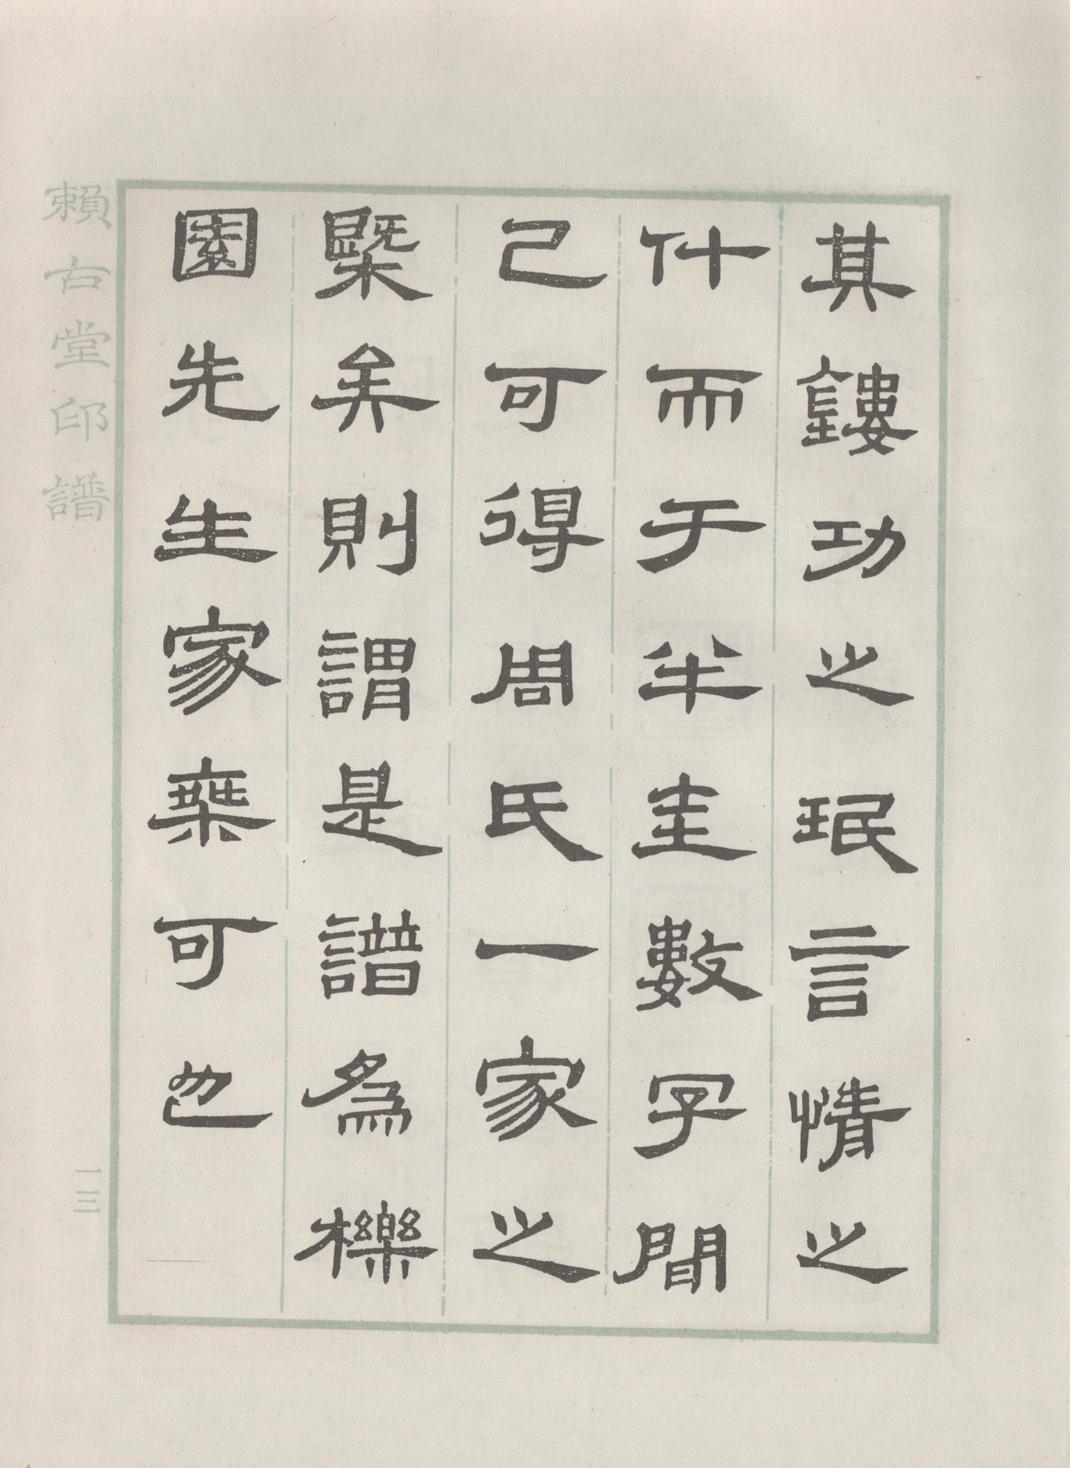 其鏤功之珉言情之
什而于半圭數字間
已可得周氏一家之
槩矣則謂是譜為櫟
園先生家乗可也
賴古堂印譜
一三